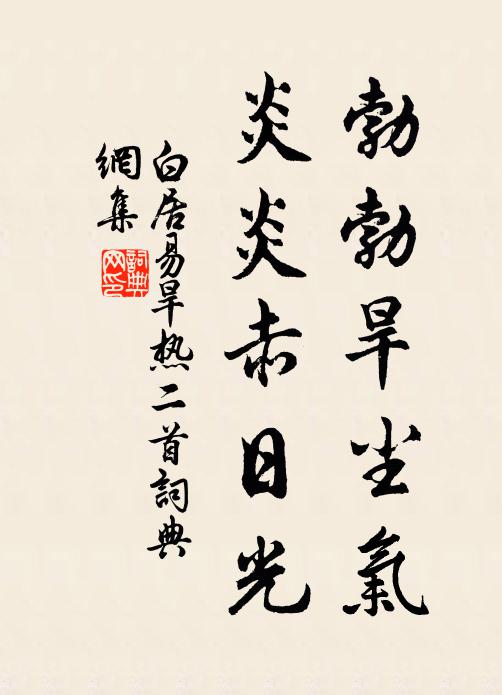 勃勃旱尘氣
炎炎赤日光
白居易旱热二首詞典
網集
詞典
网印